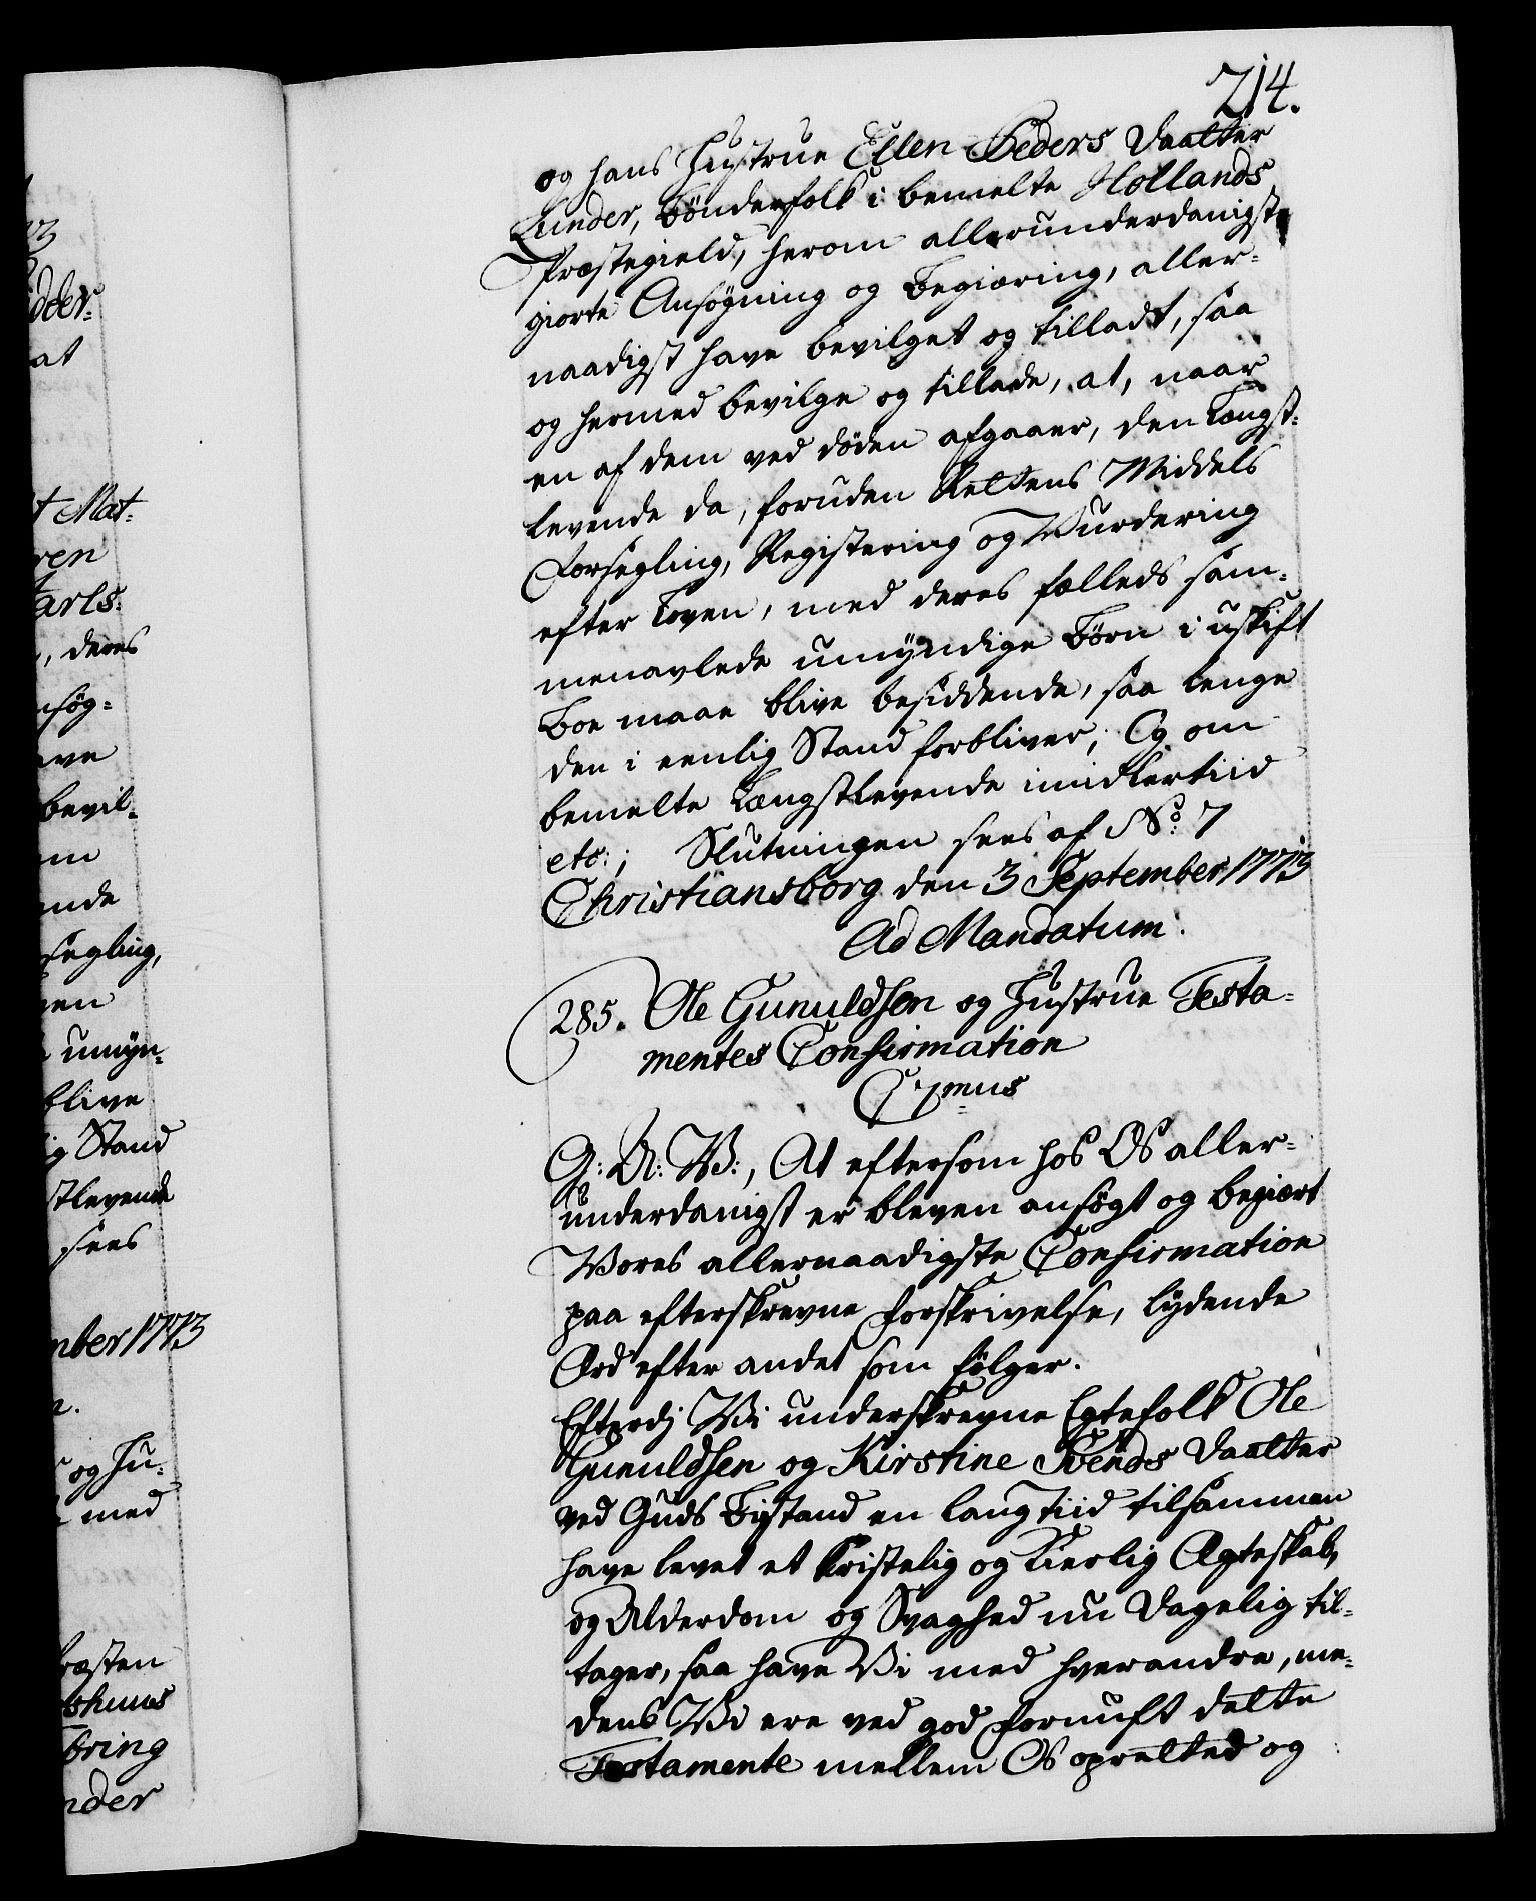 214.
og hans Hustrue Ellen Peders Daatter
Lunder, bönderfolk i bemelte Hollands
Præstegield, herom allerunderdanigst
giorte Ansøgning og Begiæring, aller-
naadigst have bevilget og tilladt, saa
og hermed bevilge og tillade, at, naar
en af dem ved döden afgaaer, den længst-
levende da, foruden Rettens Middels
Forsegling, Registering og Vurdering
efter Loven, med deres fælleds sam-
menavlede umyndige Börn i uskift
Boe maae blive besiddende, saa lenge
den i eenlig Stand forbliver, Og om
bemelte Længstlevende imidlertiid
etc:; Slutningen sees af No: 7
Christiansborg den 3 September 1773
Ad Mandatum.
285. Ole Gunuldsen og Hustrue Testa-
mentes Confirmation
C 7mus
G: A: V:, At eftersom hos Os aller-
underdanigst er bleven ansögt og begiært
Vores allernaadigste Confirmation
paa efterskrevne forskrivelse, lydende
Ord efter andet som fölger.
Efterdj Vi underskrevne Egtefolk Ole
Gunuldsen og Kirstine Svends Daatter
ved Guds Bistand en lang tiid tilsammen
have levet et kristelig og Kierlig Ægteskab,
og Alderdom og Svaghed nu dagelig til-
tager, saa have Vi med hverandre, me-
dens Vi ere ved god fornuft dette
Testamente mellem Os oprettet og
13
dder-
at
t Mat-
ren
arls-
, deres
nsøg-
ave
bevil-
em
ende
segling,
ven
umyn-
blive
ig Stand
stlevende
sees
mber 1773
og Hu-
med
ræsten
shuus
bring
nder